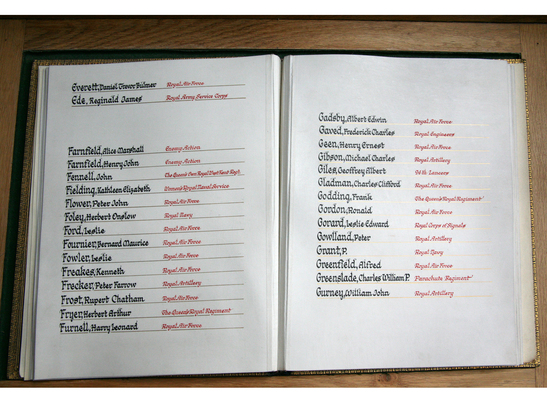 Everett, Daniel Trevor Bulmer Royal Air Force
Ede, Reginald James Royal Army Service Corps
Farnfield, Alice Marshall Enemy Action
Farnfield, Henry John Enemy Action
Fennell, John The Queen's Own Royal West Kent Regt.
Fielding, Kathleen Elizabeth Women's Royal Naval Service
Flower, Peter John Royal Air Force
Foley, Herbert Onslow Royal Navy
Ford, Leslie Royal Air Force
Fournier, Bernard Maurice Royal Air Force
Fowler, Leslie Royal Air Force
Freakes, Kenneth Royal Air Force
Frecker, Peter Farrow Royal Artillery
Frost, Rupert Chatham Royal Air Force
Fryer, Herbert Arthur The Queen's Royal Regiment
Furnell, Harry Leonard Royal Air Force
Gadsby, Albert Edwin Royal Air Force
Gaved, Frederick Charles Royal Engineers
Geen, Henry Ernest Royal Air Force
Gibson, Michael Charles Royal Artillery
Giles, Geoffrey Albert Lancers
Gladman, Charles Clifford Royal Air Force
Godding, Frank The Queen's Royal Regiment
Gordon, Ronald Royal Air Force
Govard, Leslie Edward Royal Corps of Signals
Gowlland, Peter Royal Artillery
Grant, P. Royal Navy
Greenfield, Alfred Royal Air Force
Greenslade, Charles William P. Parachute Regiment
Gurney, William John Royal Artillery